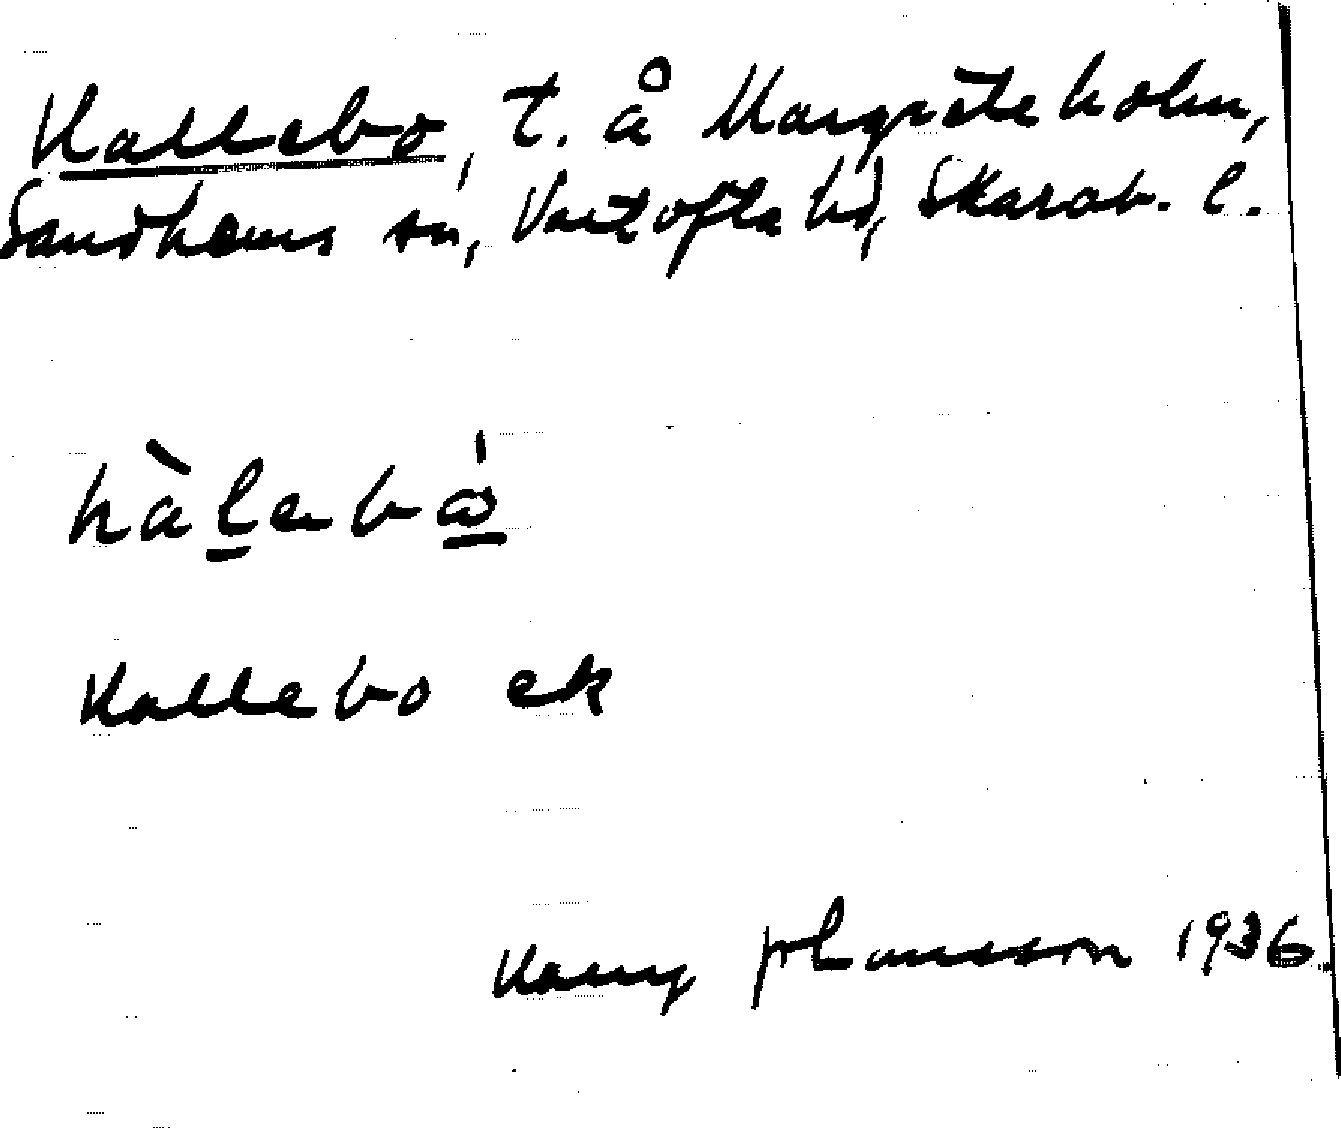 Kallebo, t. å Margreteholm,
Sandhems sn, Vartofta hd, Skarab. l.
Kallebo ek
Johansson 1936.